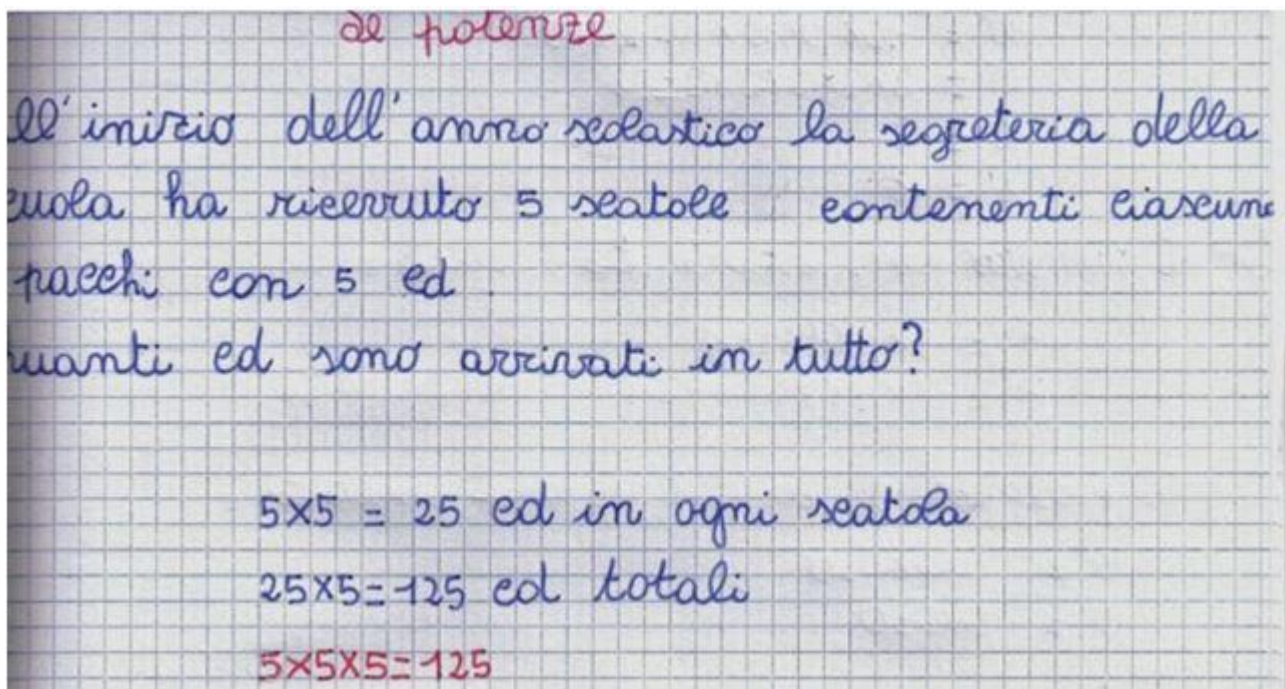 le potenze
ll'inizio dell'anno scolastico la segreteria della
cuola ha ricevuto 5 scatole contenenti ciascuna
pacchi con 5 cd.
uanti cd sono arrivati in tutto?
5x5 = 25 cd in ogni scatola
25x5=125 cd totali
5x5x5=125